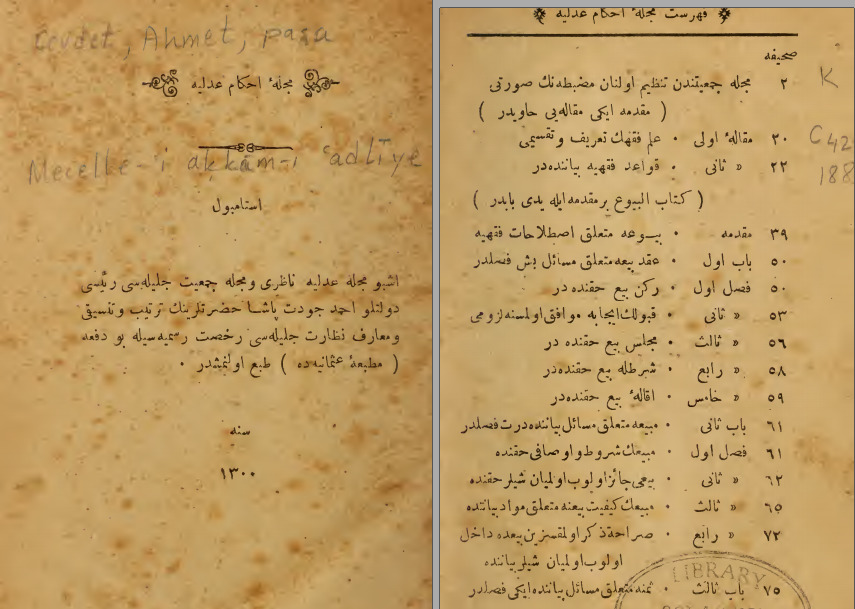 Cevdet, Ahmet, paşa
مجلهٔ احكام عدلیه
Mecelle-'i aḥkâm-ı 'adlīye
استامبول
اشبو مجله عدلیه ناظری ومجله جمعیت جلیله‌سی رئیسی
دولتلو احمد جودت پاشا حضرتلرینك ترتیب وتنسیقی
ومعارف نظارت جلیله‌سی رخصت رسمیه‌سیله بو دفعه
( مطبعهٔ عثمانیه‌ده ) طبع اولنمشدر ٠
سنه
١٣٠٠
فهرست مجلهٔ احكام عدلیه
صحیفه
٢ مجله جمعیتندن تنظیم اولنان مضبطه‌نك صورتی
( مقدمه ایكی مقاله‌یی حاویدر )
٢٠ مقالهٔ اولی ٠ علم فقهك تعریف وتقسیمی
٢٢ » ثانی ٠ قواعد فقهیه بیاننده‌در
( كتاب البیوع بر مقدمه ایله یدی بابدر )
٣٩ مقدمه ٠ بیوعه متعلق اصطلاحات فقهیه
٥٠ باب اول ٠ عقد بیعه متعلق مسائل بش فصلدر
٥٠ فصل اول ٠ ركن بیع حقنده‌در
٥٣ » ثانی ٠ قبولك ایجابه موافق اولمسنه لزومی
٥٦ » ثالث ٠ مجلس بیع حقنده در
٥٨ » رابع ٠ شرطله بیع حقنده‌در
٥٩ » خامس ٠ اقالهٔ بیع حقنده‌در
٦١ باب ثانی ٠ مبیعه متعلق مسائل بیاننده درت فصلدر
٦١ فصل اول ٠ مبیعك شروط و اوصافی حقنده
٦٢ » ثانی ٠ بیعی جائز اولوب اولمیان شیلر حقنده
٦٥ » ثالث ٠ مبیعك كیفیت بیعنه متعلق مواد بیاننده
٧٢ » رابع ٠ صراحة ذكر اولنمقسزین بیعده داخل
اولوب اولمیان شیلر بیاننده
٧٥ باب ثالث ٠ ثمنه متعلق مسائل بیاننده ایكی فصلدر
K
C42
188
LIBRARY